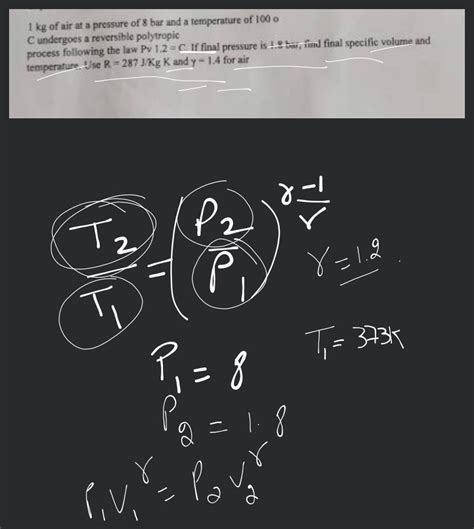 1 kg of air at a pressure of 8 bar and a temperature of 100 o
C undergoes a reversible polytropic
process following the law Pv 1.2 = C. If final pressure is 1.8 bar, find final specific volume and
temperature. Use R = 287 J/Kg K and γ = 1.4 for air
T₂/T₁ = (P₂/P₁)^(γ-1)/γ
γ = 1.2
T₁ = 373K
P₁ = 8
P₂ = 1.8
P₁V₁^γ = P₂V₂^γ